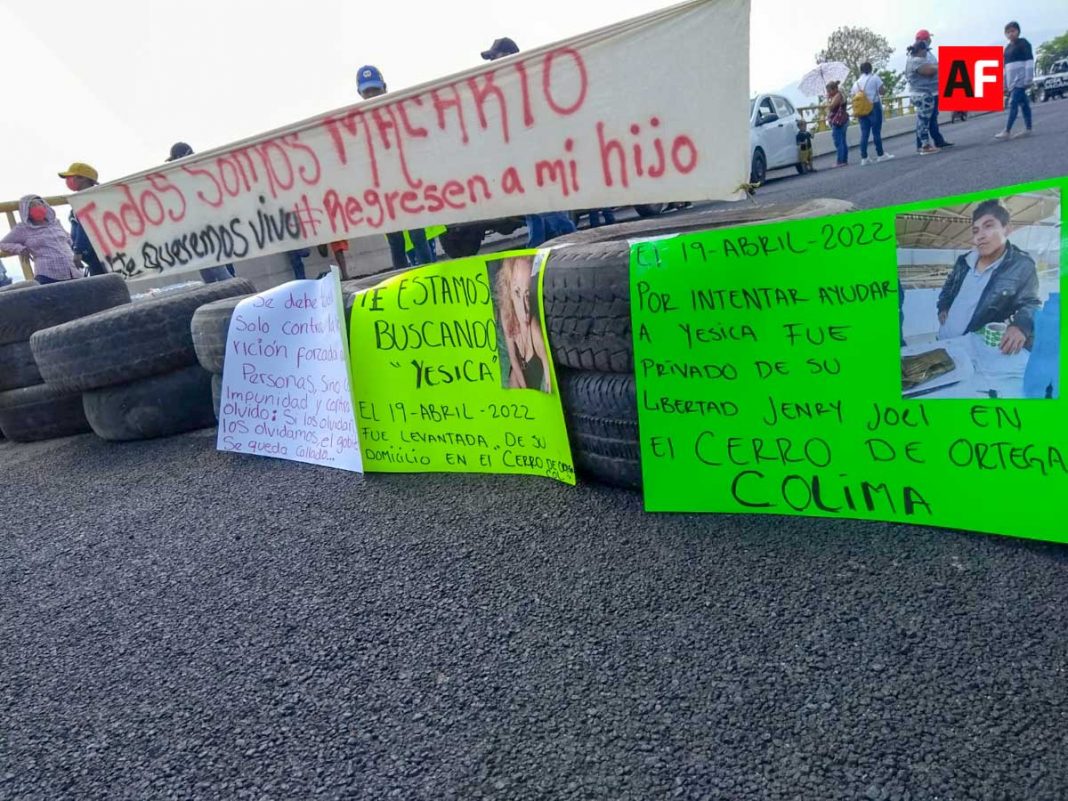 Todos Somos MACARIO
Te Queremos vivo #Regresen a mi hijo
AF
Se debe
Solo contra la
rición forzada
Personas, sino
Impunidad y contra
olvido: Si los olvidan
los olvidamos, el gob
Se queda callado...
TE ESTAMOS
BUSCANDO
"YESICA"
EL 19-ABRIL-2022
FUE LEVANTADA DE SU
DOMICILIO EN EL "CERRO DE
COL
EL 19-ABRIL-2022
POR INTENTAR AYUDAR
A YESICA FUE
PRIVADO DE SU
LIBERTAD JENRY JOEL EN
EL CERRO DE ORTEGA
COLIMA